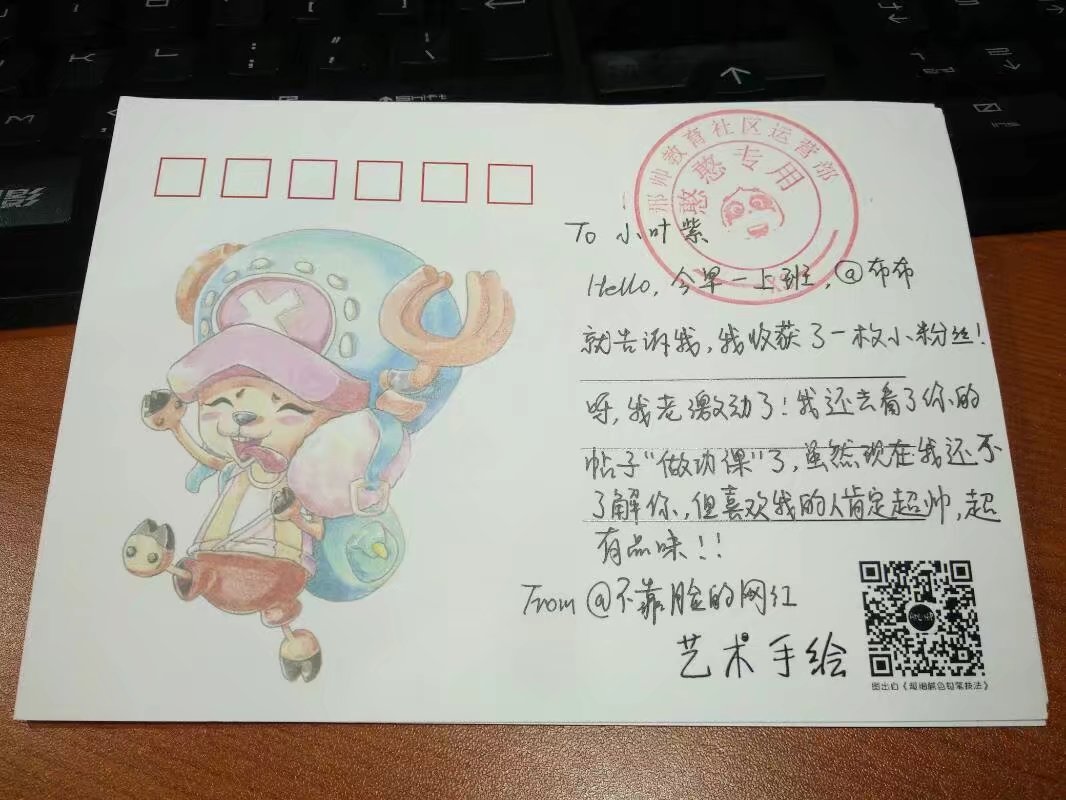 邢帅教育社区运营部
憨憨专用
To 小叶紫
Hello, 今早一上班, @布布
就告诉我, 我收获了一枚小粉丝!
呀, 我老激动了! 我还去看了你的
帖子“做功课”了, 虽然现在我还不
了解你, 但喜欢我的人肯定超帅, 超
有品味!!
From @不靠脸的网红
艺术手绘
图出自《超细腻色铅笔技法》